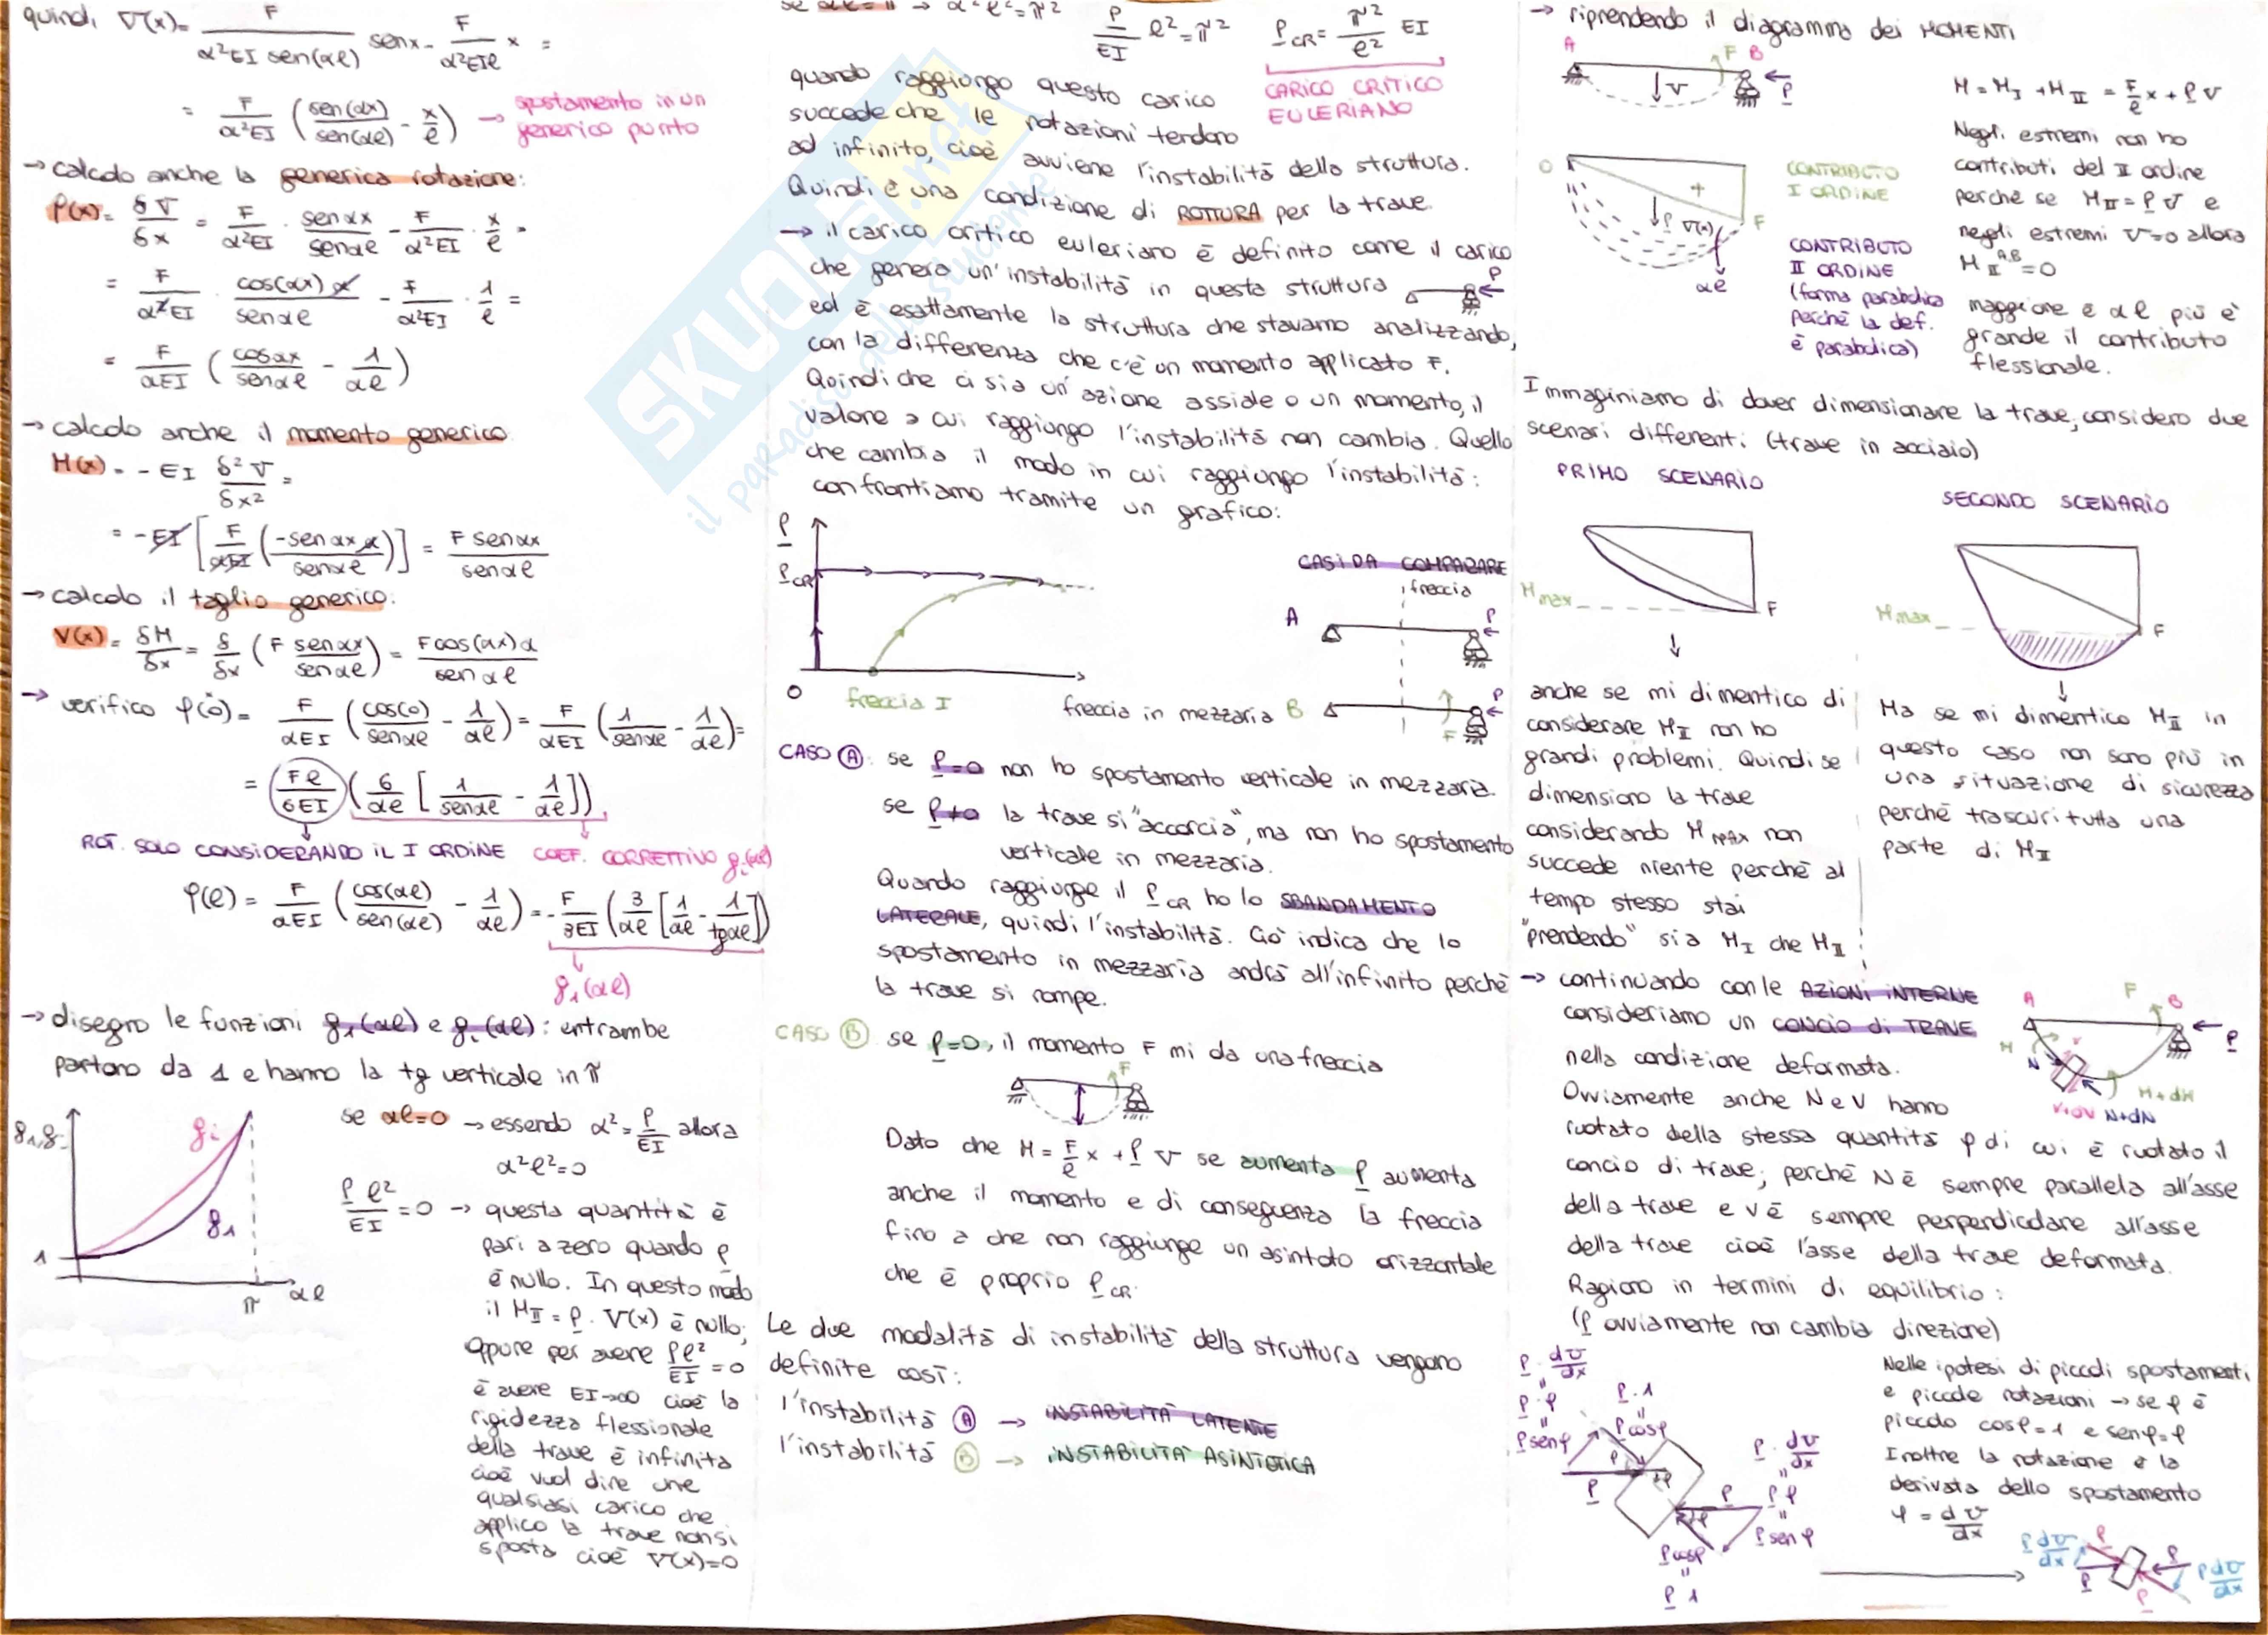 quindi V(x)= F / α²EI sen(αl) senx - F / α²EIl x =
= F / α²EI ( sen(αx) / sen(αl) - x / l ) → spostamento in un generico punto
→ calcolo anche la generica rotazione:
φ(x)= δV / δx = F / α²EI · senαx / senαl - F / α²EI · x / l =
= F / α²EI · cos(αx) α / senαl - F / α²EI · 1 / l =
= F / αEI ( cosαx / senαl - 1 / αl )
→ calcolo anche il momento generico
M(x) = - EI δ²V / δx² =
= - EI [ F / αEI ( -senαx α / senαl ) ] = F senαx / senαl
→ calcolo il taglio generico:
V(x) = δM / δx = δ / δx ( F senαx / senαl ) = F cos(αx) α / senαl
→ verifico φ(0)= F / αEI ( cos(0) / senαl - 1 / αl ) = F / αEI ( 1 / senαl - 1 / αl ) =
= ( Fl / 6EI ) ( 6 / αl [ 1 / senαl - 1 / αl ] )
ROT. SOLO CONSIDERANDO IL I ORDINE COEF. CORRETTIVO gi(αl)
φ(l) = F / αEI ( cos(αl) / sen(αl) - 1 / αl ) = - F / 3EI ( 3 / αl [ 1 / αl - 1 / tgαl ] )
g1(αl)
→ disegno le funzioni g1(αl) e gi(αl): entrambe
partono da 1 e hanno la tg verticale in π
g1,gi
gi
g1
1
π
αl
se αl=0 → essendo α² = P / EI allora
α²l²=0
P l² / EI = 0 → questa quantità è
pari a zero quando P
è nullo. In questo modo
il MII = P · V(x) è nullo;
oppure per avere Pl² / EI = 0
è avere EI→∞ cioè la
rigidezza flessionale
della trave è infinita
cioè vuol dire che
qualsiasi carico che
applico la trave non si
sposta cioè V(x)=0
se αl = π → α²l²=π² P / EI l²=π² PCR = π² / l² EI
CARICO CRITICO
EULERIANO
quando raggiungo questo carico
succede che le rotazioni tendono
ad infinito, cioè avviene l'instabilità della struttura.
Quindi è una condizione di ROTTURA per la trave
→ il carico critico euleriano è definito come il carico
che genera un'instabilità in questa struttura
P
ed è esattamente la struttura che stavamo analizzando,
con la differenza che c'è un momento applicato F.
Quindi che ci sia un'azione assiale o un momento, il
valore a cui raggiungo l'instabilità non cambia. Quello
che cambia il modo in cui raggiungo l'instabilità:
confrontiamo tramite un grafico:
P
PCR
O
freccia I
freccia in mezzaria
CASI DA COMPARARE
freccia
A
P
B
P
F
CASO A: se P=0 non ho spostamento verticale in mezzaria.
se P≠0 la trave si "accorcia", ma non ho spostamento
verticale in mezzaria.
Quando raggiunge il PCR ho lo SBANDAMENTO
LATERALE, quindi l'instabilità. Ciò indica che lo
spostamento in mezzaria andrà all'infinito perchè
la trave si rompe.
CASO B se P=0, il momento F mi da una freccia
F
Dato che M = F / l x + P V se aumenta P aumenta
anche il momento e di conseguenza la freccia
fino a che non raggiunge un asintoto orizzontale
che è proprio PCR.
Le due modalità di instabilità della struttura vengono
definite così:
l'instabilità A → INSTABILITÀ LATENTE
l'instabilità B → INSTABILITÀ ASINTOTICA
→ riprendendo il diagramma dei MOMENTI
A
F B
V
P
M = MI + MII = F / l x + P V
Negli estremi non ho
contributi del II ordine
perchè se MII = P V e
negli estremi V=0 allora
MII A,B = 0
maggiore è αl più è
grande il contributo
flessionale.
O
+
P V(x)
F
αl
CONTRIBUTO
I ORDINE
CONTRIBUTO
II ORDINE
(forma parabolica
perchè la def.
è parabolica)
Immaginiamo di dover dimensionare la trave, considero due
scenari differenti (trave in acciaio)
PRIMO SCENARIO
Mmax
F
anche se mi dimentico di
considerare MI non ho
grandi problemi. Quindi se
dimensiono la trave
considerando MMAX non
succede niente perchè al
tempo stesso stai
"prendendo" sia MI che MII
SECONDO SCENARIO
Mmax
F
Ma se mi dimentico MII in
questo caso non sono più in
una situazione di sicurezza
perchè trascuri tutta una
parte di MII
→ continuando con le AZIONI INTERNE
consideriamo un CONCIO di TRAVE
nella condizione deformata.
A
F
B
P
M
N
V
M+dM
V+dV N+dN
Ovviamente anche N e V hanno
ruotato della stessa quantità φ di cui è ruotato il
concio di trave; perchè N è sempre parallela all'asse
della trave e V è sempre perpendicolare all'asse
della trave cioè l'asse della trave deformata.
Ragiono in termini di equilibrio:
(P ovviamente non cambia direzione)
P · dv / dx
"
P · φ
"
P senφ
P · 1
"
P cosφ
P
P · dv / dx
"
P φ
"
P senφ
P
P cosφ
"
P 1
Nelle ipotesi di piccoli spostamenti
e piccole rotazioni → se φ è
piccolo cosφ=1 e senφ=φ
Inoltre la rotazione è la
derivata dello spostamento
φ = dv / dx
P dv / dx
P
P
P
P
P dv / dx
SKUOLA.net
il paradiso dello studente